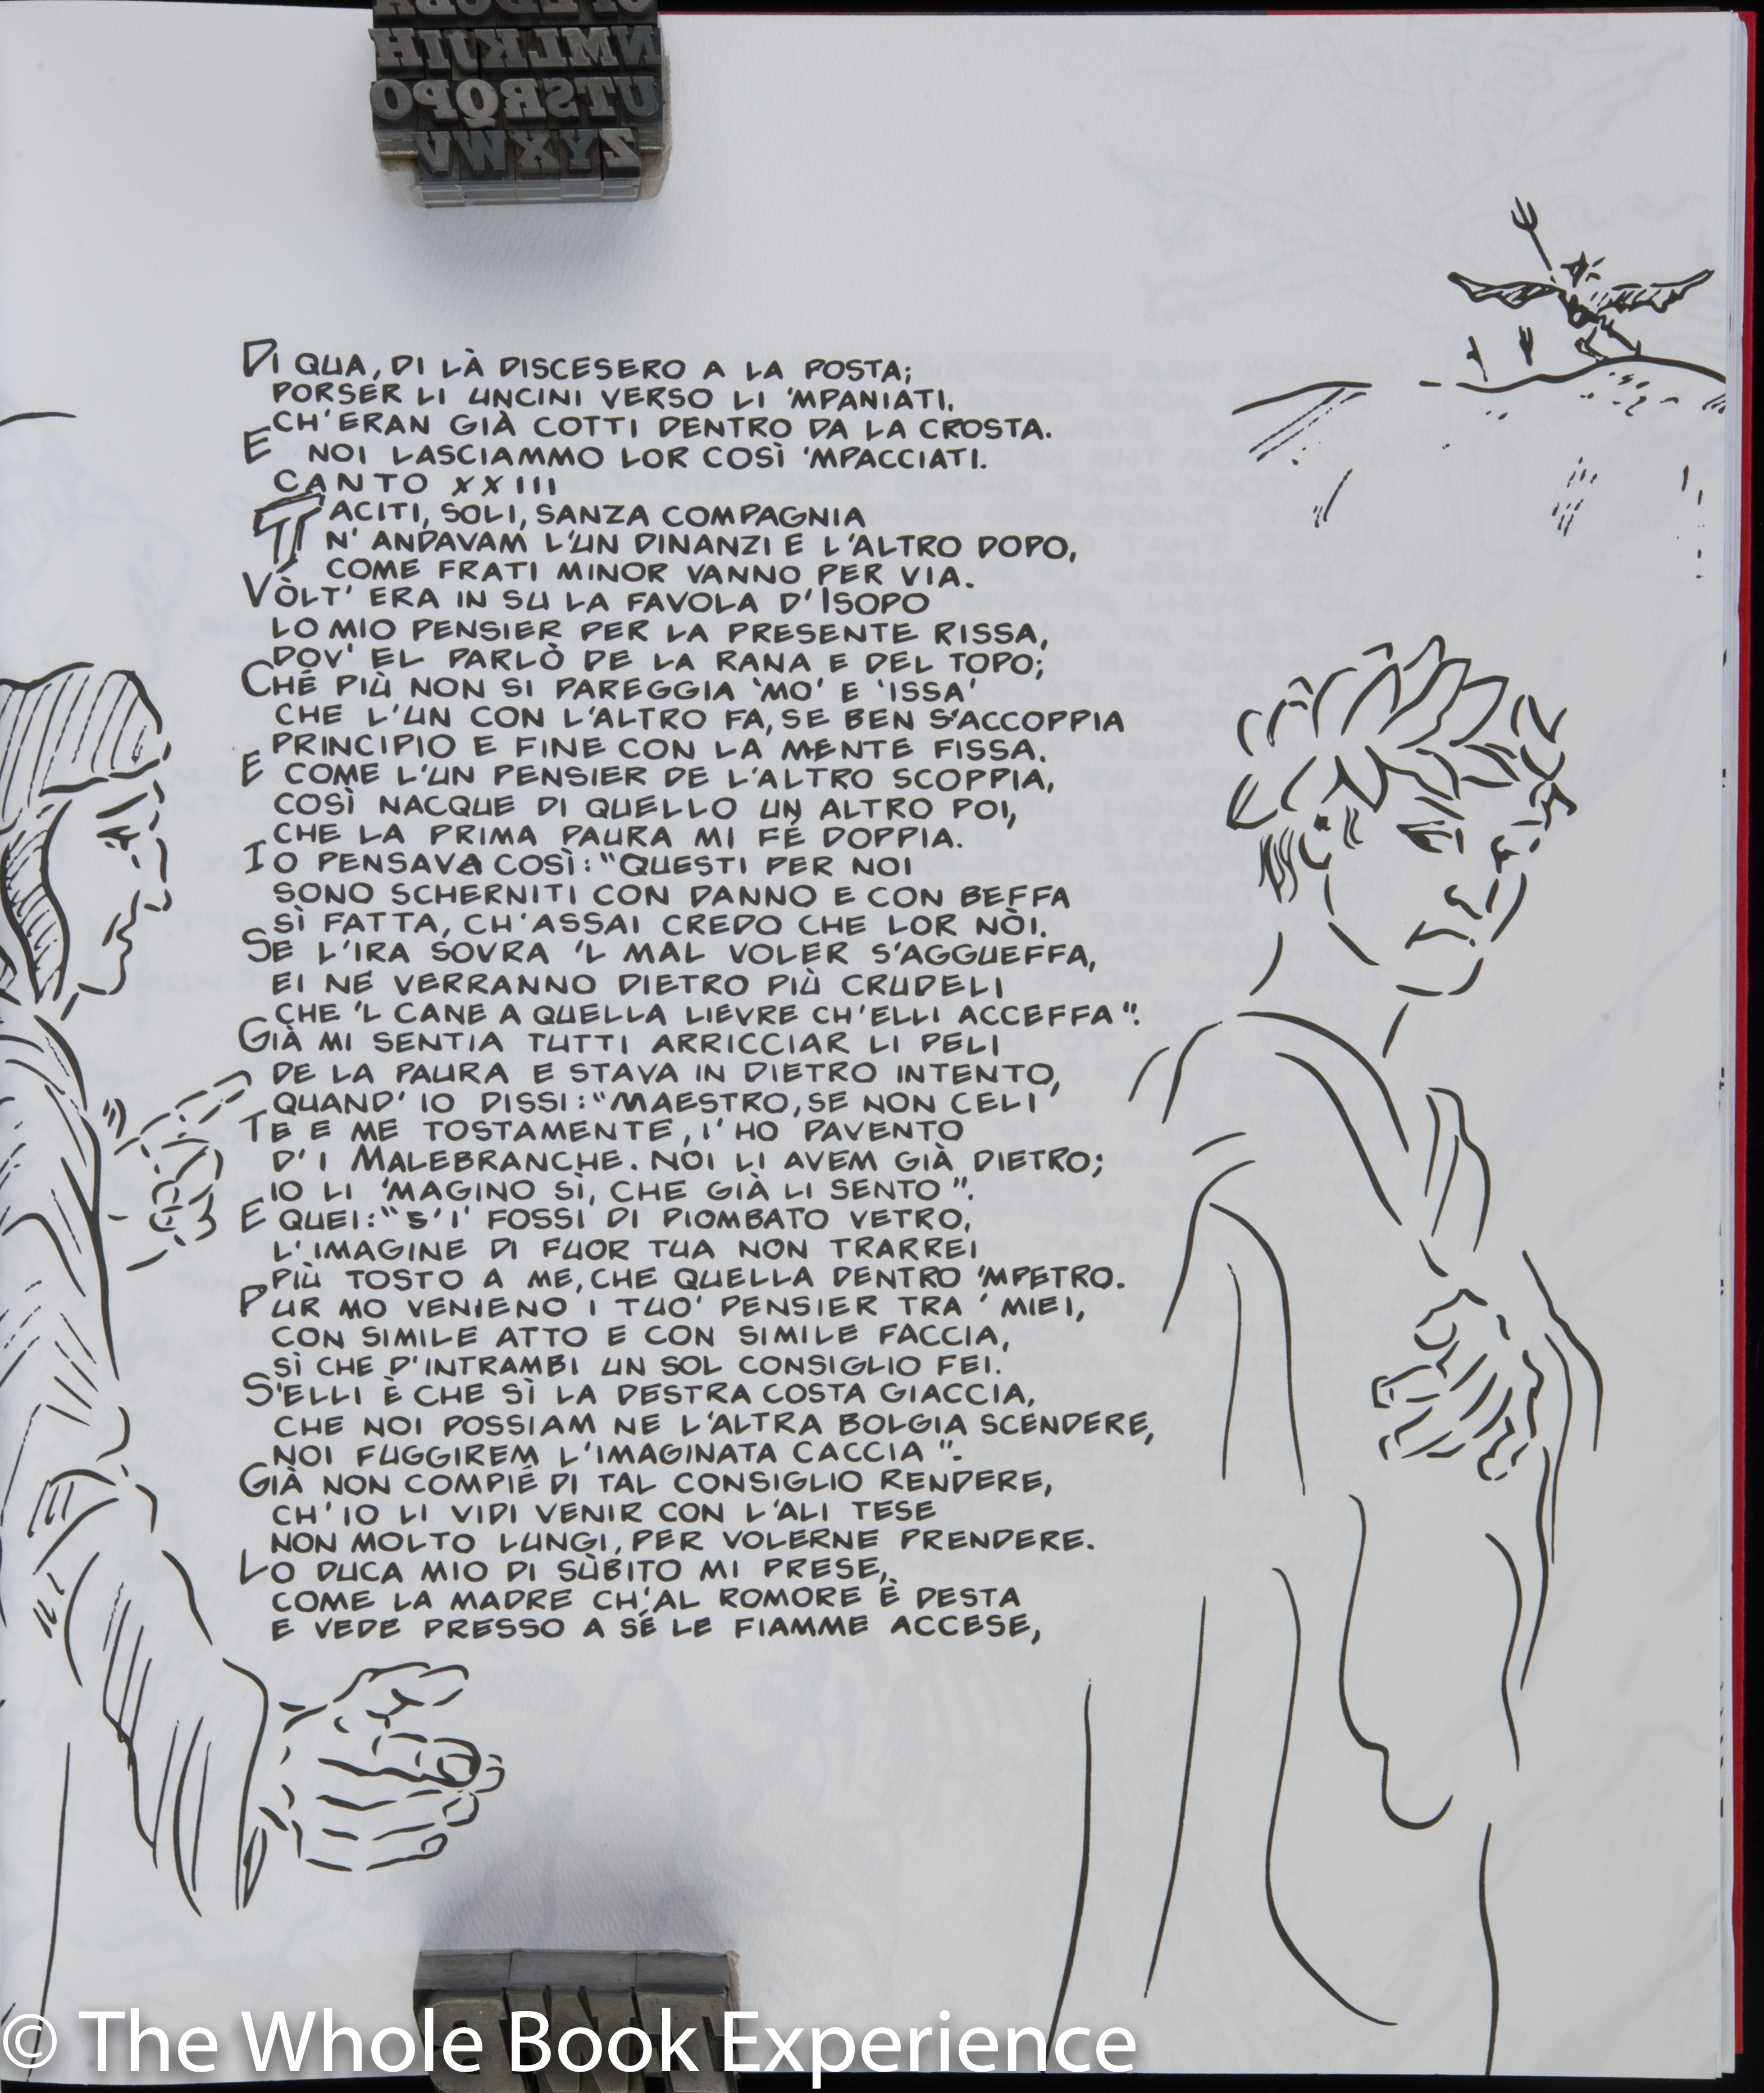 NMLKJIH
UTSRQPO
ZYXWV
DI QUA, DI LÀ DISCESERO A LA POSTA;
PORSER LI UNCINI VERSO LI 'MPANIATI,
CH'ERAN GIÀ COTTI DENTRO DA LA CROSTA.
E NOI LASCIAMMO LOR COSÌ 'MPACCIATI.
CANTO XXIII
TACITI, SOLI, SANZA COMPAGNIA
N' ANDAVAM L'UN DINANZI E L'ALTRO DOPO,
COME FRATI MINOR VANNO PER VIA.
VÒLT' ERA IN SU LA FAVOLA D'ISOPO
LO MIO PENSIER PER LA PRESENTE RISSA,
DOV' EL PARLÒ DE LA RANA E DEL TOPO;
CHÉ PIÙ NON SI PAREGGIA 'MO' E 'ISSA'
CHE L'UN CON L'ALTRO FA, SE BEN S'ACCOPPIA
PRINCIPIO E FINE CON LA MENTE FISSA.
E COME L'UN PENSIER DE L'ALTRO SCOPPIA,
COSÌ NACQUE DI QUELLO UN ALTRO POI,
CHE LA PRIMA PAURA MI FÉ DOPPIA.
IO PENSAVA COSÌ: "QUESTI PER NOI
SONO SCHERNITI CON DANNO E CON BEFFA
SÌ FATTA, CH'ASSAI CREDO CHE LOR NÒI.
SE L'IRA SOVRA 'L MAL VOLER S'AGGUEFFA,
EI NE VERRANNO DIETRO PIÙ CRUDELI
CHE 'L CANE A QUELLA LIEVRE CH'ELLI ACCEFFA".
GIÀ MI SENTIA TUTTI ARRICCIAR LI PELI
DE LA PAURA E STAVA IN DIETRO INTENTO,
QUAND' IO DISSI: "MAESTRO, SE NON CELI
TE E ME TOSTAMENTE, I' HO PAVENTO
D' I MALEBRANCHE. NOI LI AVEM GIÀ DIETRO;
IO LI 'MAGINO SÌ, CHE GIÀ LI SENTO".
E QUEI: "S' I' FOSSI DI PIOMBATO VETRO,
L'IMAGINE DI FUOR TUA NON TRARREI
PIÙ TOSTO A ME, CHE QUELLA DENTRO 'MPETRO.
PUR MO VENIENO I TUO' PENSIER TRA ' MIEI,
CON SIMILE ATTO E CON SIMILE FACCIA,
SÌ CHE D'INTRAMBI UN SOL CONSIGLIO FEI.
S'ELLI È CHE SÌ LA DESTRA COSTA GIACCIA,
CHE NOI POSSIAM NE L'ALTRA BOLGIA SCENDERE,
NOI FUGGIREM L'IMAGINATA CACCIA".
GIÀ NON COMPIÉ DI TAL CONSIGLIO RENDERE,
CH'IO LI VIDI VENIR CON L'ALI TESE
NON MOLTO LUNGI, PER VOLERNE PRENDERE.
LO DUCA MIO DI SÙBITO MI PRESE,
COME LA MADRE CH'AL ROMORE È DESTA
E VEDE PRESSO A SÉ LE FIAMME ACCESE,
© The Whole Book Experience